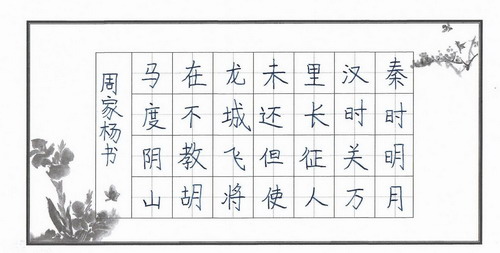 秦时明月
汉时关万
里长征人
未还但使
龙城飞将
在不教胡
马度阴山
周家杨书